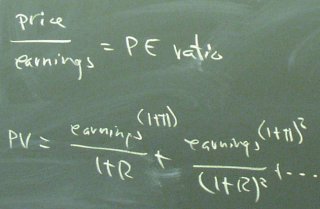 price
earnings = PE ratio
PV = earnings(1+π) / 1+R + earnings(1+π)² / (1+R)² + ...